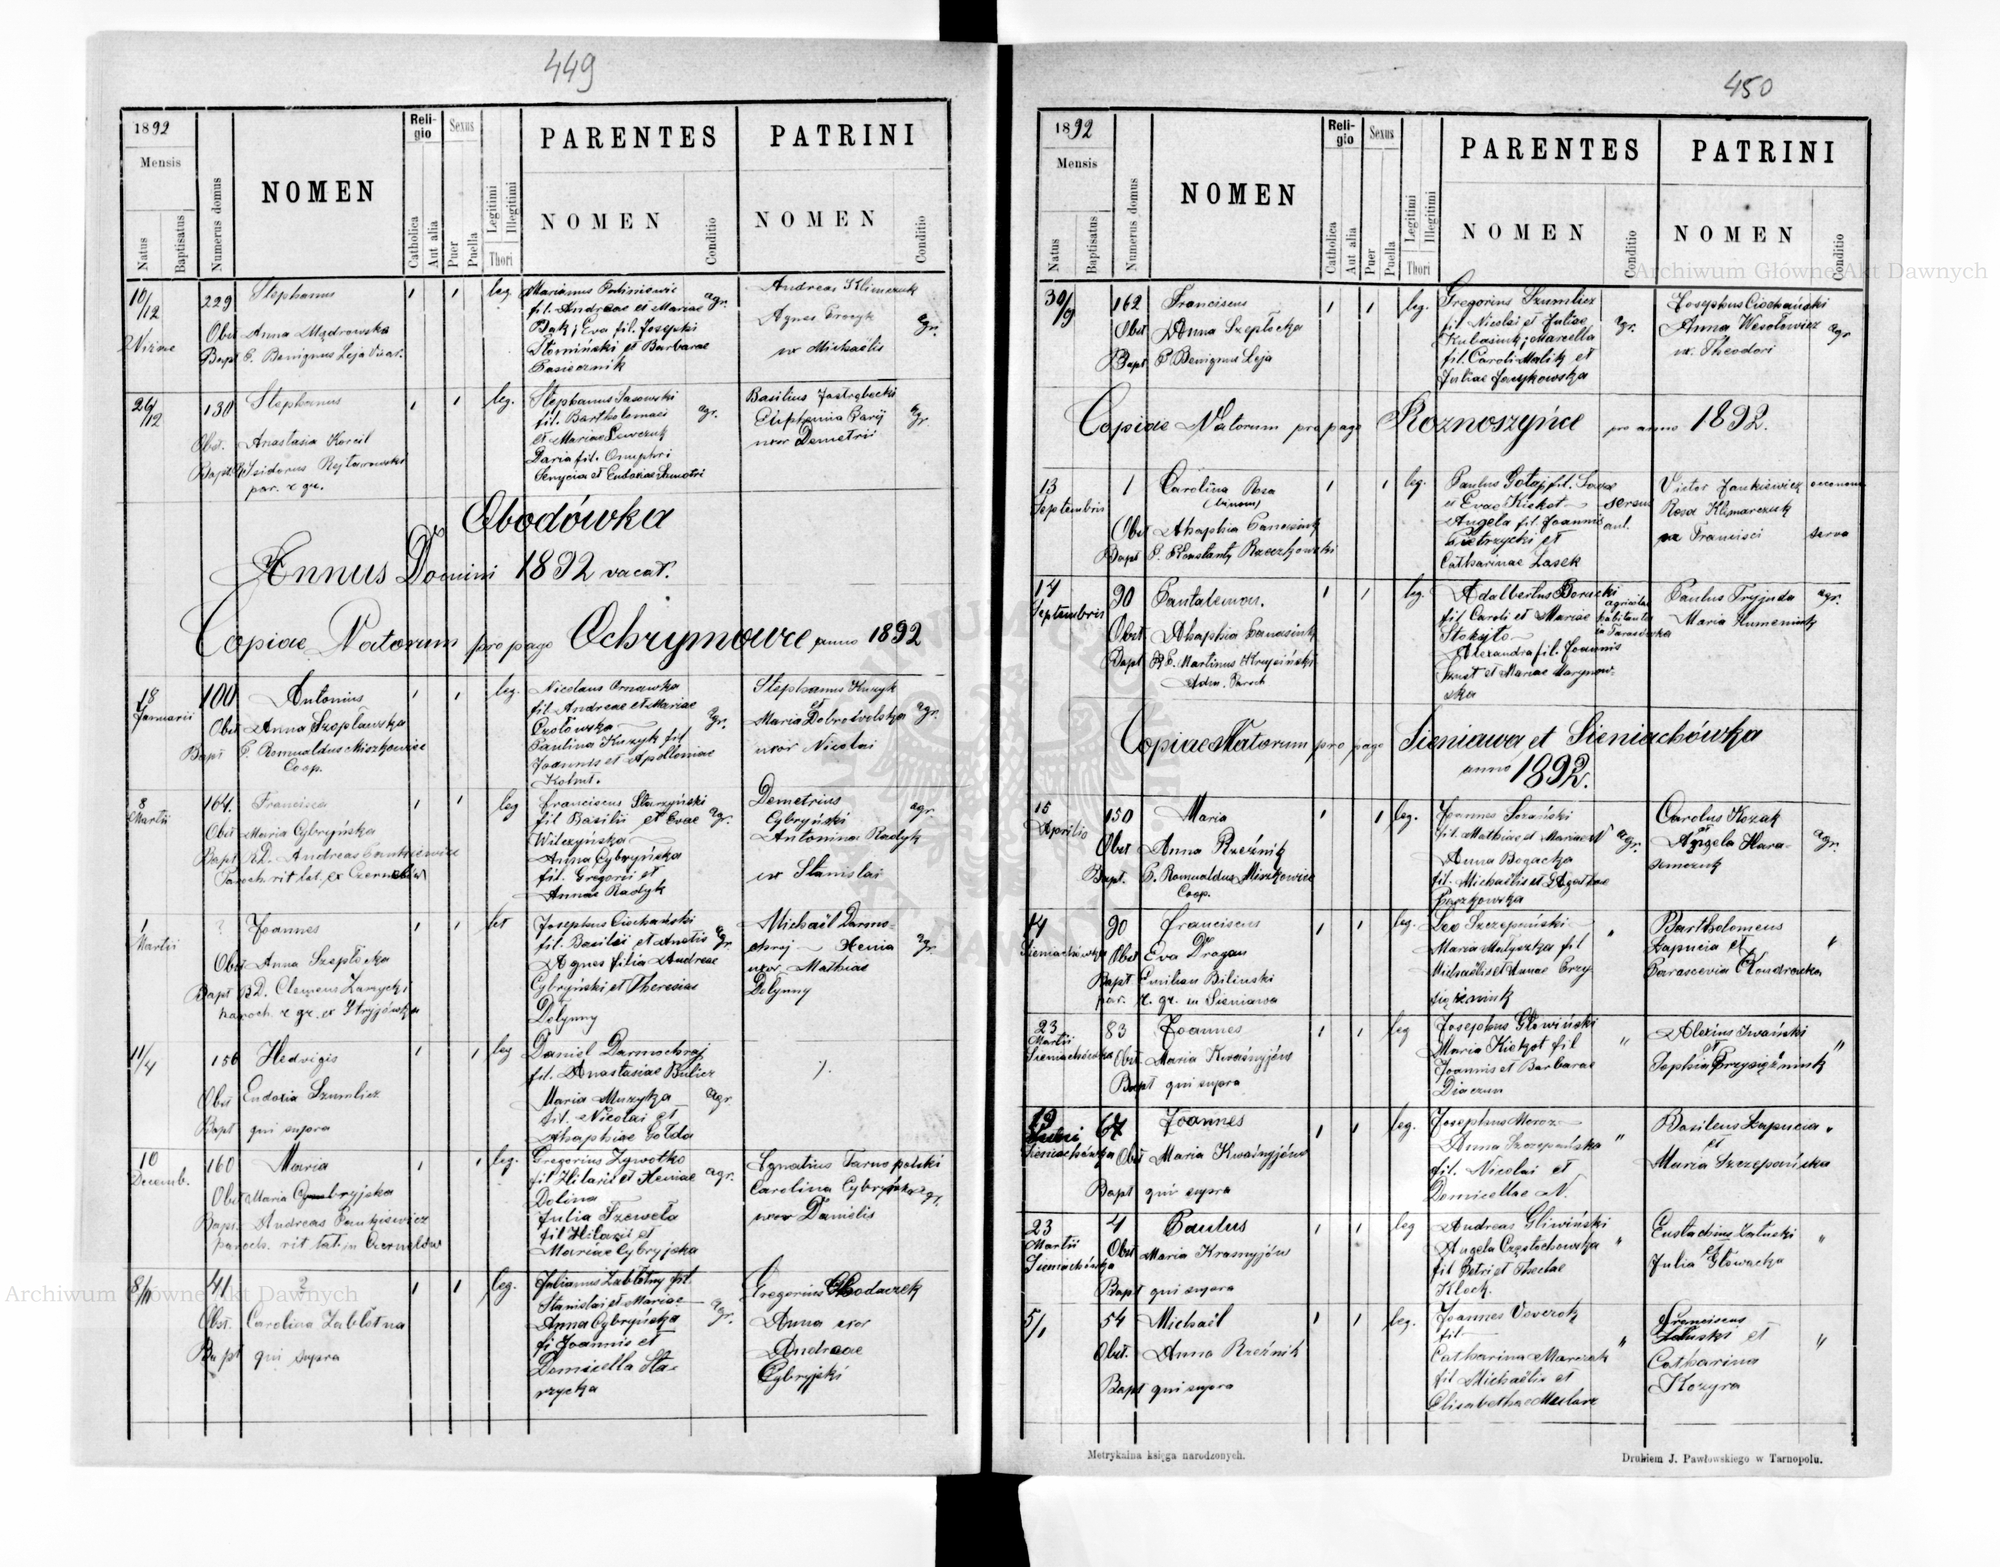 449
1892
Mensis
Natus
Baptisatus
Numerus domus
NOMEN
Religio
Catholica
Aut alia
Sexus
Puer
Puella
Legitimi
Illegitimi
Thori
PARENTES
NOMEN
Conditio
PATRINI
NOMEN
Conditio
10/12
229 Stephanus 1 1 leg.
Obst Anna Mądrowska
Bapt P. Benignus Leja
fil. Andreae et Mariae agr.
Bąk; Eva fil. Josephi
Słomiński et Barbarae
Pasiecznik
Andreas Klimczuk
Agnes
ux Michaelis
agr.
26/12 130 Stephanus 1 1 leg.
Obst. Anastasia Korcil
Isidorus
par. r. gr.
Stephanus Sasowski
fil. Bartholomaei agr.
et Mariae Lewczuk
Daria fil. Onuphri
Basilius Jastrzębecki
Euphemia
uxor Demetrii
agr.
Obodówka
Annus Domini 1892 vacat.
Copiae Natorum pro pago Ochrymowce anno 1892
18 Januarii
100 Antonius 1 1 leg.
Obst Anna Szepławska
Bapt P. Romualdus Miszkowicz
Coop.
Nicolaus
fil Andreae et Mariae
Czołowska agr.
Paulina Kuzyk fil
Joannis et Apolloniae
Stephanus Kuzyk
et
Maria Dobrowolska agr.
uxor Nicolai
8 Martii
164. Francisca 1 1 leg
Obst Maria Cybryńska
Bapt R.D. Andreas
Paroch. rit lat. ex Czernelów
Franciscus Starzyński
fil Basilii et Evae agr.
Wilczyńska
Anna Cybryńska
fil. Gregorii et
Annae Radyk
Demetrius
Cybryński
Antonina Radyk
ux Stanislai
agr.
1 Martii
? Joannes 1 1
Obst Anna Szepłocka
Bapt R.D. Clemens
paroch. r. gr. ex Stryjówka
Josephus Ciechański
fil. Basilii et agr.
Agnes filia Andreae
Cybryński et Theresiae
Dołynny
Michaël Darmo-
chraj Xenia agr.
uxor Mathiae
Dołynny
11/4
156 Hedvigis 1 1 leg
Obst Eudoxia Szumlicz
Bapt qui supra
Daniel Darmochraj
fil. Anastasiae Bulicz
Maria Muzyka agr.
fil. Nicolai et
Ahaphiae Gołda
10 Decemb.
160 Maria 1 1 leg.
Obst Maria Cybryjska
Bapt. Andreas
paroch. rit lat. in Czernelów
Gregorius Żywotko
fil Hilarii et Xeniae agr.
Dolina
Julia Szeweła
fil Hilarii et
Mariae Cybryjska
Ignatius Tarnopolski
Carolina Cybryńska agr.
uxor Danielis
8/11
41 ? 1 1 leg.
Obst. Carolina Zabłotna
Bapt qui supra
Julianus Zabłotny fil.
Stanislai et Mariae
Anna Cybryńska agr.
fi Joannis et
Domicella Sta-
rzycka
Gregorius Chodaczek
Anna uxor
Andreae
Cybryjski
450
1892
Mensis
Natus
Baptisatus
Numerus domus
NOMEN
Religio
Catholica
Aut alia
Sexus
Puer
Puella
Legitimi
Illegitimi
Thori
PARENTES
NOMEN
Conditio
PATRINI
NOMEN
Conditio
30/9
162 Franciscus 1 1 leg.
Obst Anna Szepłocka
Bapt P. Benignus Leja
Gregorius Szumlicz
fil Nicolai et Juliae agr.
Marcella
fil. Caroli Malik et
Juliae Janykowska
Josephus Ciechański
Anna Wesołowicz agr
ux. Theodori
Copiae Natorum pro pago Roznoszyńce pro anno 1892.
13 Septembris
1 Carolina Rosa 1 1 leg.
(binom)
Obst Ahaphia Panasiuk
Bapt P. Konstanty Rzeczkowski
Paulus Gołąj fil. Savae
et Evae Kiekot servus
Angela fil. Joannis aul.
Pietrzycki et
Catharinae Lasek
Victor Jankiewicz oeconom
Rosa Klymarczuk
ux Francisci serva
14 Septembris
90 Pantaleimon. 1 1 leg.
Obst Ahaphia Panasiuk
Bapt R.P. Martinus Krupiński
Adm. Paroch
Adalbertus Borucki
fil Caroli et Mariae
agricolae habitantes in Tarasówka
Alexandra fil. Joannis
et Mariae Marynow-
ska
Paulus Tryjuda agr.
Maria Humeniuk
Copiae Natorum pro pago Sieniawa et Sieniachówka
anno 1892.
15 Aprilis
150 Maria 1 1 leg.
Obst Anna Rzeźnik
Bapt. P. Romualdus Miszkowicz
Coop.
Joannes
fil. Mathiae et Mariae N agr.
Anna Bogacka
fil. Michaëlis et Agathae
Paszkowska
Carolus Kozak
et
Angela Hara- agr.
semczuk
14 Sieniachówka
90 Franciscus 1 1 leg.
Obst Eva Dragan
Bapt Emilian Bilinski
par. r. gr. in Sieniawa
Leo Szczepański "
Maria Małyszka fil
Michaëlis et Annae Przy
siężniuk
Bartholomeus
Łapucia et "
Parascevia Kondracka
23 Martii Sieniachówka
83 Joannes 1 1 leg
Obst Maria Kwaśnyjów
Bapt qui supra
Josephus Głowiński
Maria Kiekot fil "
Joannis et Barbarae
Diaczun
Alexius Iwański
et
Sophia Przysiężniuk "
19 Sieniachówka
67 Joannes 1 1 leg.
Obst Maria Kwaśnyjów
Bapt qui supra
Josephus Moroz
Anna Szczepańska "
fil. Nicolai et
Domicellae N.
Basileus Łapucia "
et
Maria Szczepańska
23 Martii Sieniachówka
4 Paulus 1 1 leg
Obst Maria Krasnyjów
Bapt qui supra
Andreas Gliwiński
Angela Częstochowska "
fil Petri et Theclae
Klock.
Eustachius Załuski "
et
Julia Głowacka
5/1
54 Michaël 1 1 leg.
Obst. Anna Rzeźnik
Bapt qui supra
Joannes
fil
Catharina Marczak "
fil Michaëlis et
Elisabethae
Franciscus
Załuski et "
Catharina
Kozyra
Metrykalna księga narodzonych.
Drukiem J. Pawłowskiego w Tarnopolu.
Archiwum Główne Akt Dawnych
Archiwum Główne Akt Dawnych